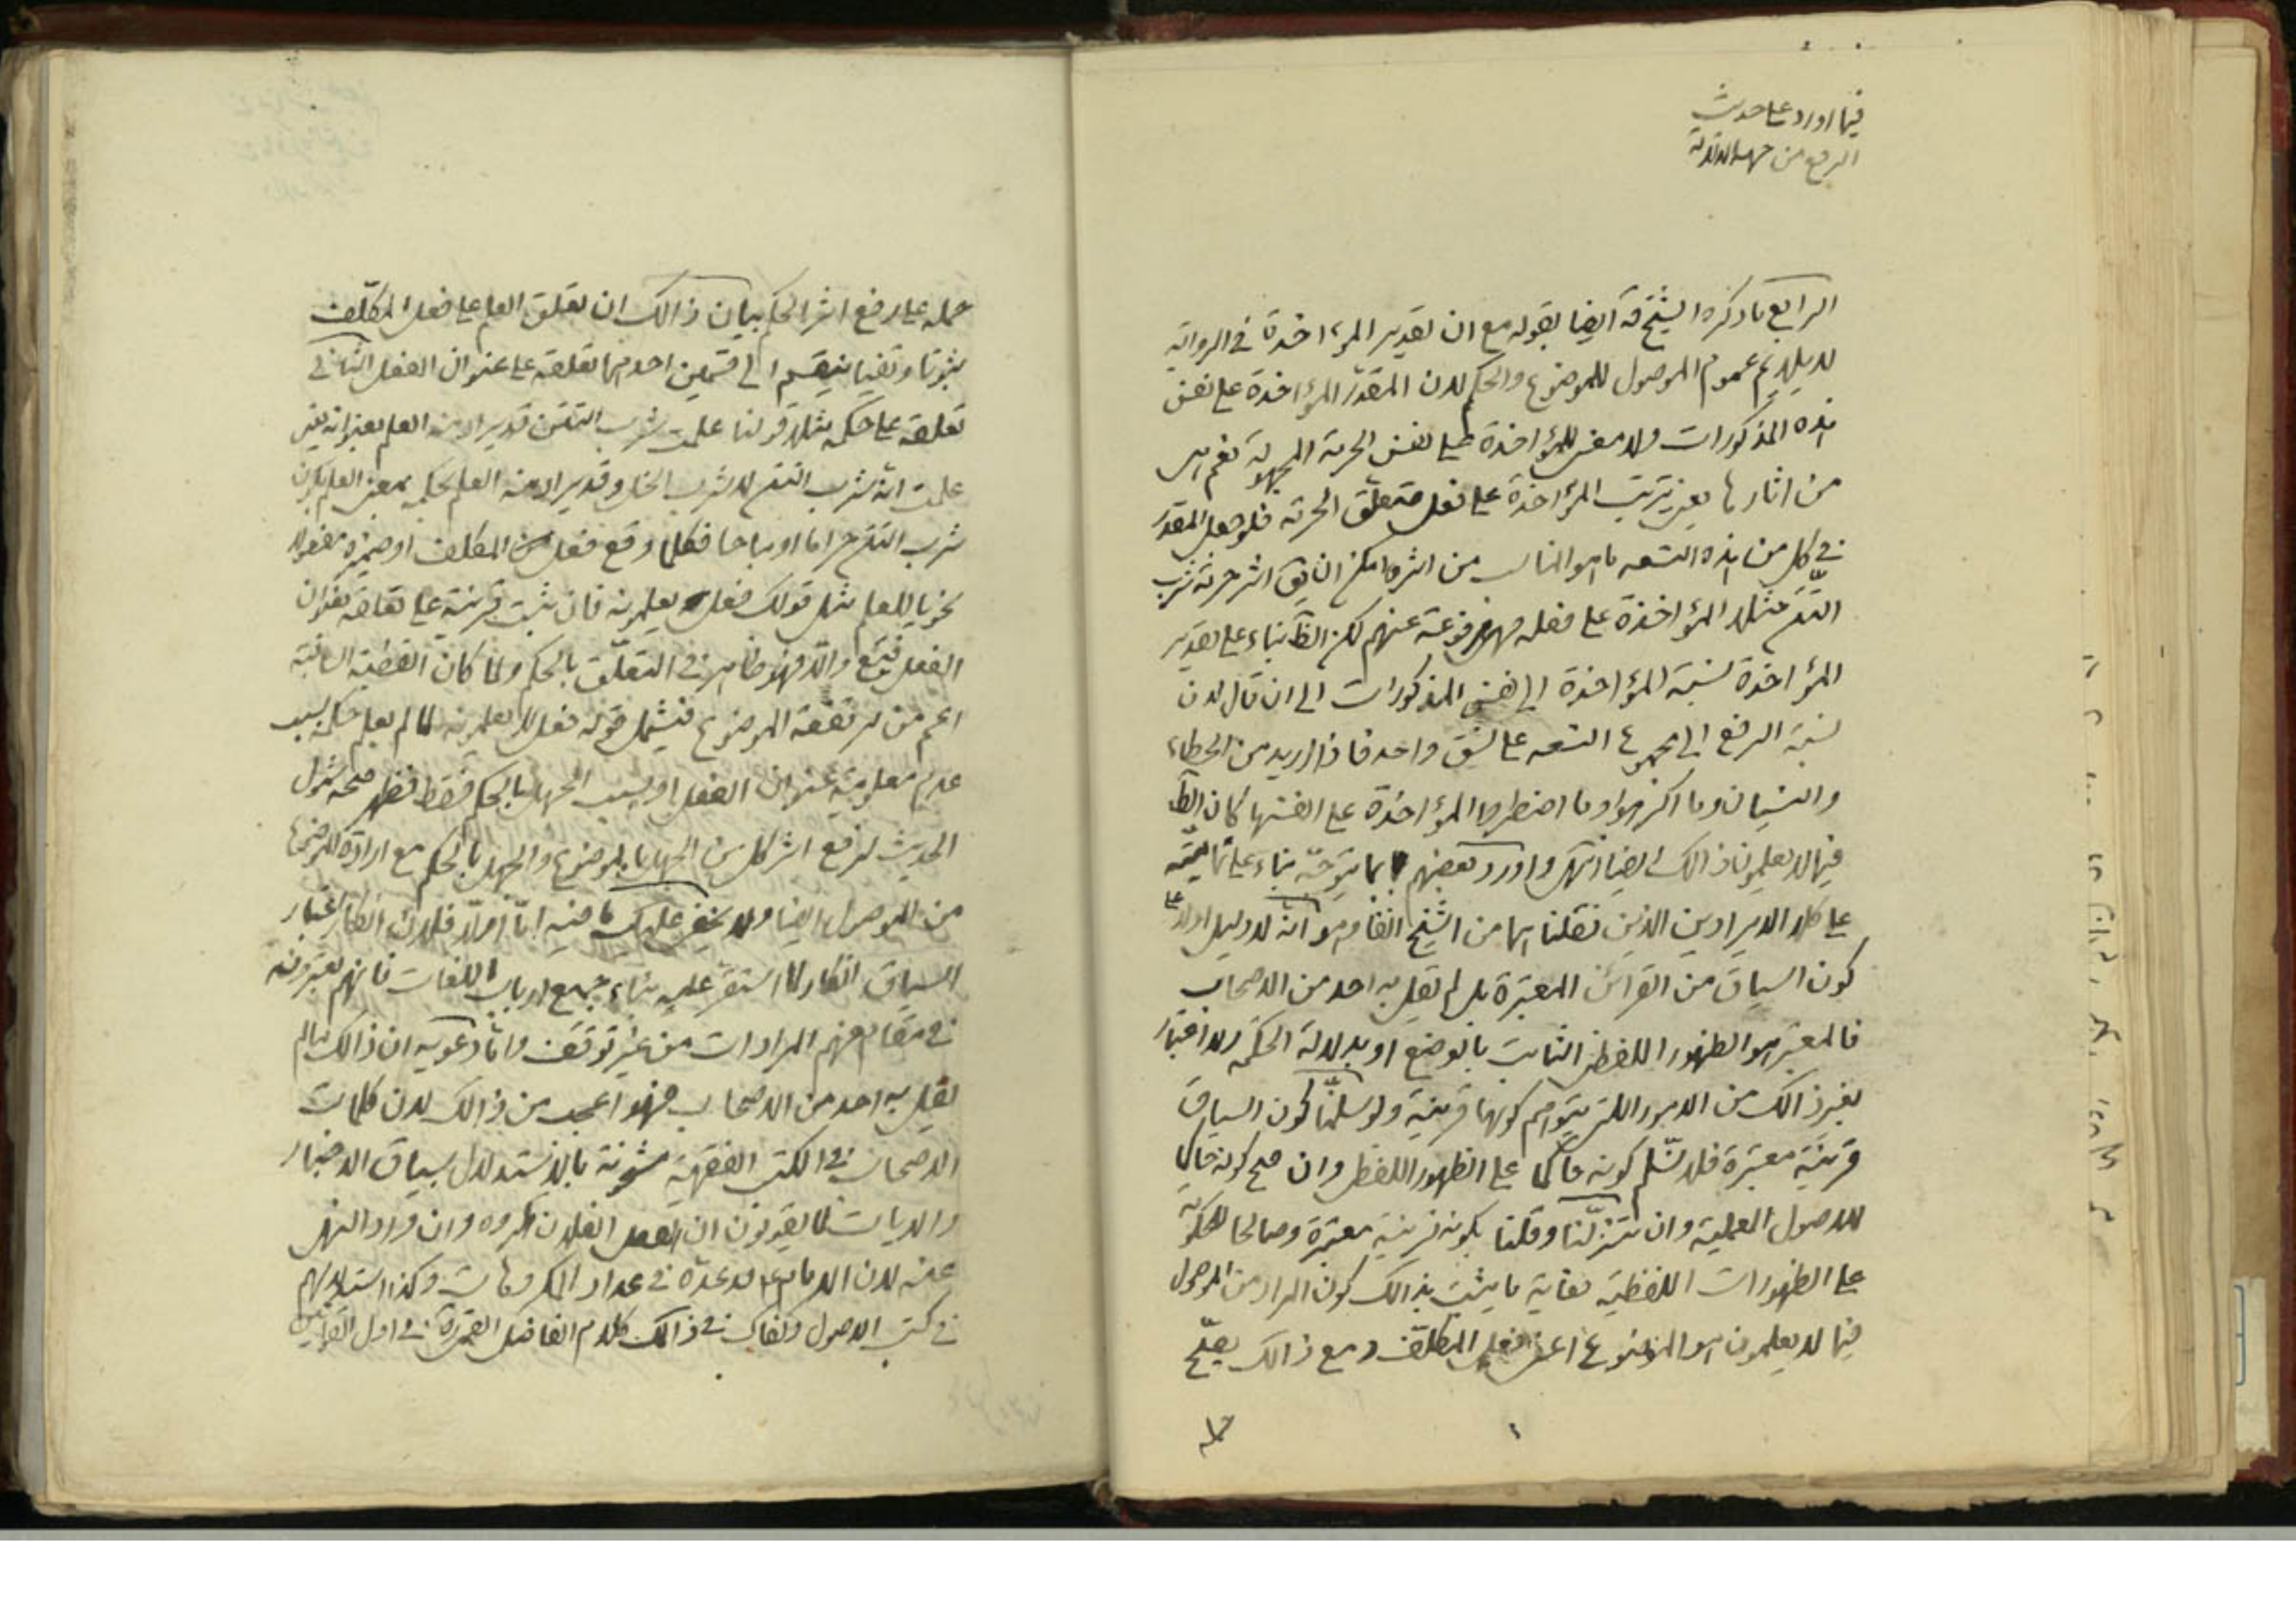 فيما اورد على حديث
الرفع من جهة الدلالة
الرابع ما ذكره الشيخ قه ايضا بقوله مع ان تقدير المؤاخذة في الرواية
لا يلايم عموم الموصول للموضوع والحكم لان المقدر المؤاخذة على نفس
هذه المذكورات ولا معنى للمؤاخذة على نفس الحرمة المجهولة نعم هى
من اثارها يعنى ترتب المؤاخذة على فعل متعلق الحرمة فلو جعل المقدر
في كل من هذه التسعه ما هو المناسب من اثره امكن ان يق اثر حرمة شرب
التتن مثلا المؤاخذة على فعله فهى مرفوعة عنهم لكن الظ بناء على تقدير
المؤاخذة نسبة المؤاخذة الى نفس المذكورات الى ان قال لان
نسبة الرفع الى مجموع التسعه على نسق واحد فاذا اريد من الخطاء
والنسيان وما اكرهوا وما اضطروا المؤاخذة على انفسها كان الظ
فيما لا يعلمون ذالك ايضا انتهى واورد بعضهم بما يتوجه بناء على تماميته
على كلا الايرادين الذين نقلنا هما من الشيخ انفا وهو انه لا دليل اولا على
كون السياق من القرائن المعتبرة بل لم يقل به احد من الاصحاب
فالمعتبر هو الظهور اللفظى الثابت بالوضع او بدلالة الحكمة ولا اعتبار
بغير ذالك من الامور اللتى يتوهم كونها قرينية ولو سلمنا كون السياق
قرينية معتبرة فلا نسلم كونه حاكما على الظهور اللفظى وان صح كونه حاكما
للاصول العملية وان تنزلنا وقلنا بكونه قرينية معتبرة وصالحا للحكومة
على الظهورات اللفظية فغاية ما يثبت بذالك كون المراد من الموصول
فيما لا يعلمون هو الموضوع اعنى فعل المكلف ومع ذالك يصح
حمله
حمله على رفع اثر الحكم بيان ذالك ان تعلق العلم على فعل المكلف
ثبوتا ونفيا ينقسم الى قسمين احدهما تعلقه على عنوان الفعل الثانى
تعلقه على حكمه مثلا قولنا علمت شرب التتن قد يراد منه العلم بعنوانه يعنى
علمت انه شرب التتن لا شرب الخل وقد يراد منه العلم بحكمه بمعنى العلم بكون
شرب التتن حراما او مباحا فكلما وقع فعل من المكلف او ضميره مفعولا
نحويا للعلم مثل قولك فعل يعلمونه فان ثبت قرينة على تعلقه بعنوان
الفعل فيتبع والا فهو ظاهر في التعلق بالحكم ولما كان القضية السالبة
اعم من تحقق الموضوع فيشمل قوله فعل لا يعلمونه لما لم يعلم حكمه بسبب
عدم معلومية عنوان الفعل او بسبب الجهل بالحكم فقط فظهر صحة شمول
الحديث لرفع اثر كل من الجهل بالموضوع والجهل بالحكم مع ارادة الموضوع
من الموصول ايضا ولا يخفى عليك ما فيه اما اولا فلان انكار اعتبار
السياق انكار لما استقر عليه بناء جميع ارباب اللغات فانهم يعتبرونه
في مقام فهم المرادات من غير توقف واما دعويه ان ذالك مما لم
يقل به احد من الاصحاب فهو اعجب من ذالك لان كلمات
الاصحاب في الكتب الفقهية مشحونة بالاستدلال بسياق الاخبار
والايات كما يقولون ان العمل الفلان مكروه وان ورد النهى
عنه لان الامام ع قد عده في عداد المكروهات وكذا استدلالهم
في كتب الاصول وكفاك في ذالك كلام الفاضل القمى ره في اول القوانين